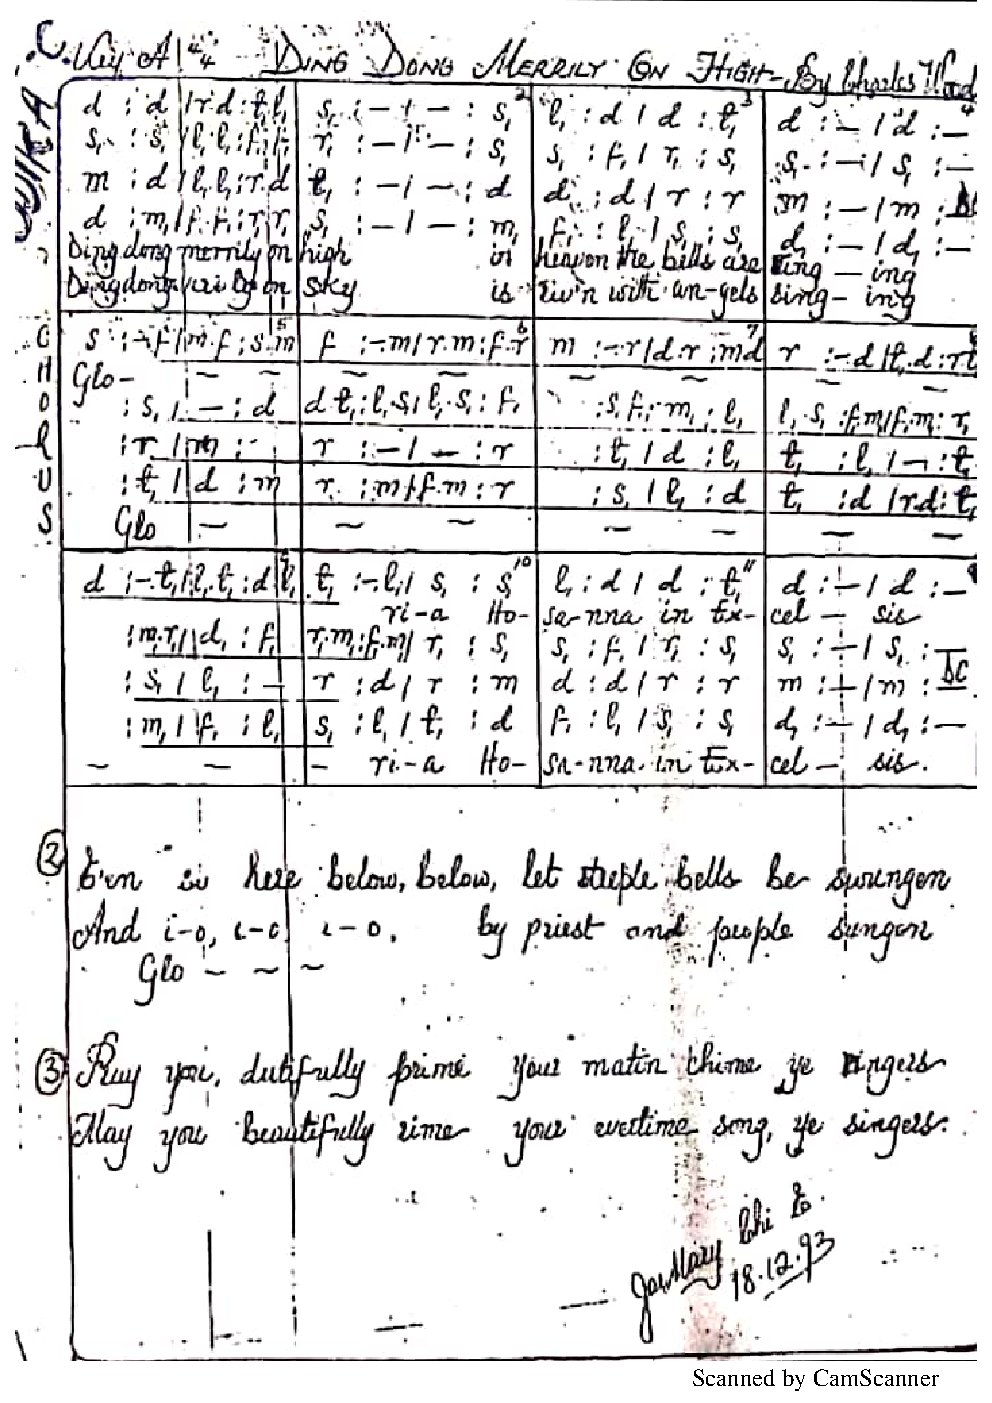 C. Key A 4/4 DING DONG MERRILY ON HIGH - By Charles Wood
d : d / r.d : t,.l, s, : - / - : s, 2 l, : d / d : t, 3 d : - / d : - 4
s, : s, / l,.l, : f,.f, r, : - / - : s, s, : f, / r, : s, s, : - / s, : -
m : d / l,.l, : r.d t, : - / - : d d : d / r : r m : - / m : -
d : m, / f,.f, : r,.r, s, : - / - : m, f, : l, / s, : s, d, : - / d, : -
Ding dong merrily on high in heaven the bells are ring - ing
Ding dong veri ly on sky is riv'n with an-gels sing - ing
CHORUS
s : -.f / m.f : s.m 5 f : -.m / r.m : f.r 6 m : -.r / d.r : m.d 7 r : -.d / t,.d : r.t,
Glo - ~ ~ ~ ~ ~ ~ ~ ~
: s, / - : d d.t, : l,.s, / l,.s, : f, : s,.f, / m, : l, l,.s, : f,.m, / f,.m, : r,
: r / m : - r : - / - : r : t, / d : l, t, : l, / - : t,
: t, / d : m r : m / f.m : r : s, / l, : d t, : d / r.d : t,
Glo - ~ ~ ~ ~ - -
d : -.t, / l,.t, : d.l, 9 t, : -.l, / s, : s, 10 l, : d / d : t, 11 d : - / d : -
ri-a Ho- sa-nna in Ex- cel - sis
: m,.r, / d, : f, r,.m, : f,.m, / r, : s, s, : f, / r, : s, s, : - / s, : -
: s, / l, : - r : d / r : m d : d / r : r m : - / m : - DC
: m, / f, : l, s, : l, / t, : d f, : l, / s, : s, d, : - / d, : -
~ - - ri-a Ho- sa-nna in Ex- cel - sis.
② E'en so here below, below, let steeple bells be swungen
And i-o, i-o i-o, by priest and people sungen
Glo ~ ~ ~
③ Pray you, dutifully prime your matin chime ye ringers
May you beautifully rime your evetime song, ye singers.
18.12.93
Scanned by CamScanner